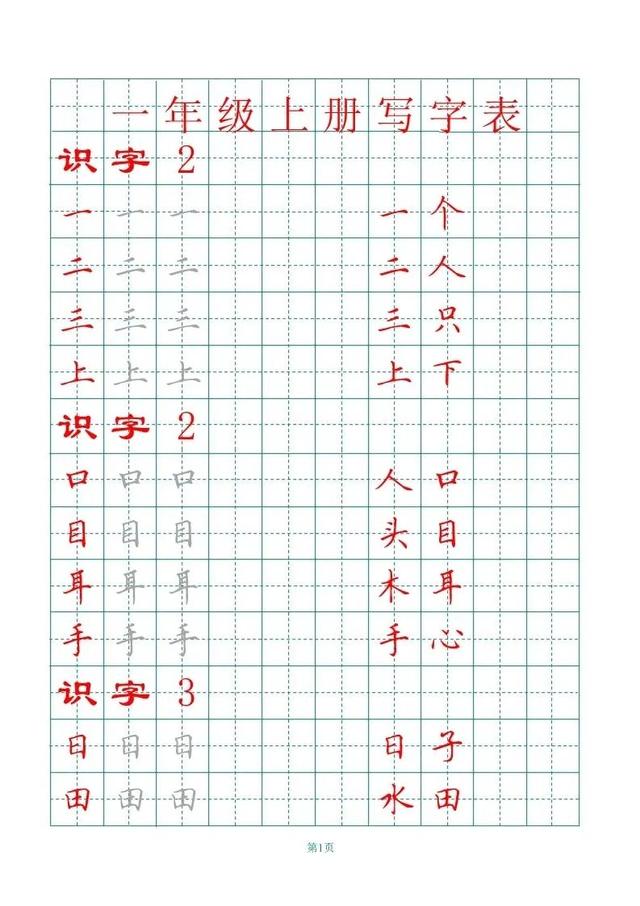 一年级上册写字表
识字 2
一 一 一 一 个
二 二 二 二 人
三 三 三 三 只
上 上 上 上 下
识字 2
口 口 口 人 口
目 目 目 头 目
耳 耳 耳 木 耳
手 手 手 手 心
识字 3
日 日 日 日 子
田 田 田 水 田
第1页